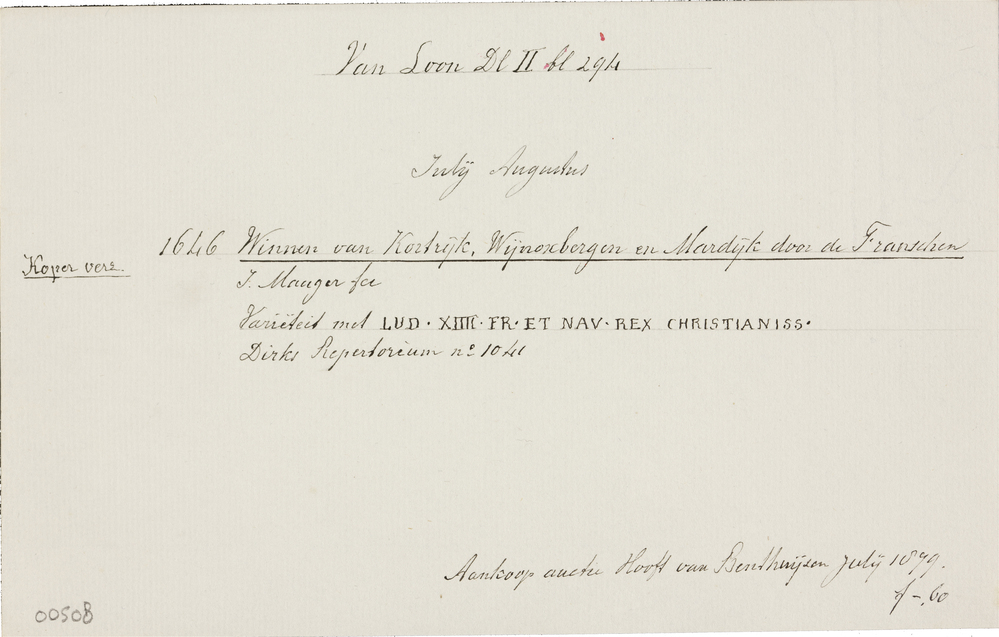 Van Loon Dl II bl 294
Julij Augustus
1646 Winnen van Kortrijk, Wijnoxbergen en Mardijk door de Franschen
Koper verz.
J. Mauger fec
Variëteit met LUD · XIIII · FR · ET NAV · REX CHRISTIANISS ·
Dirks Repertorium no 1041
Aankoop auctie Hooft van Benthuijzen Julij 1899.
f -,60
00508